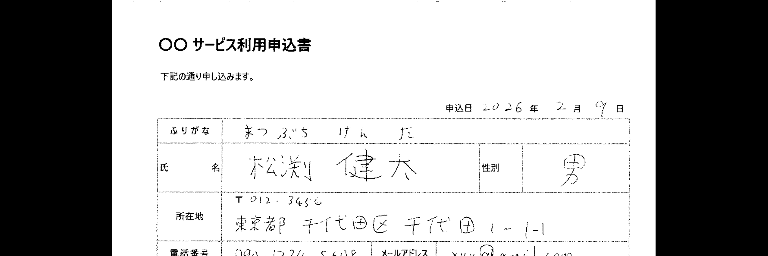 〇〇 サービス利用申込書
下記の通り申し込みます。
申込日 2026 年 2 月 9 日
ふりがな まつ ぶち けん だ
氏 名 松渕 健太 性別 男
〒012-3456
所在地 東京都 千代田区 千代田 1-1-1
電話番号 090 1234 5678 メールアドレス